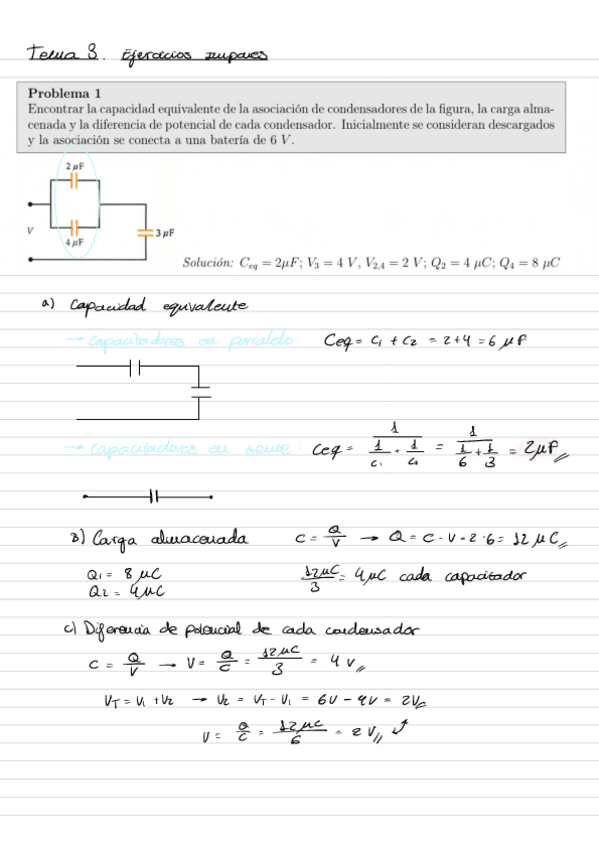 Tema 3. Ejercicios impares
Problema 1
Encontrar la capacidad equivalente de la asociación de condensadores de la figura, la carga alma-
cenada y la diferencia de potencial de cada condensador. Inicialmente se consideran descargados
y la asociación se conecta a una batería de 6 V.
2 μF
V
4 μF
3 μF
Solución: Ceq = 2μF; V3 = 4 V, V2,4 = 2 V; Q2 = 4 μC; Q4 = 8 μC
a) Capacidad equivalente
→ Capacitadores en paralelo: Ceq = C1 + C2 = 2+4 = 6 μF
→ Capacitadores en serie: Ceq = 1/(1/C1 + 1/C2) = 1/(1/6 + 1/3) = 2μF
B) Carga almacenada C = Q/V → Q = C · V = 2 · 6 = 12 μC
Q1 = 8 μC 12μC/3 = 4μC cada capacitador
Q2 = 4μC
c) Diferencia de potencial de cada condensador
C = Q/V → V = Q/C = 12μC/3 = 4 V
VT = V1 + V2 → V2 = VT - V1 = 6V - 4V = 2V
V = Q/C = 12μC/6 = 2 V